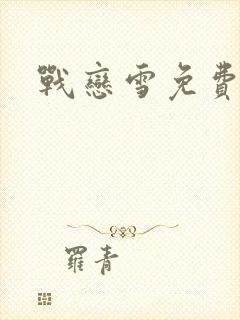 戰戀雪免費
羅青